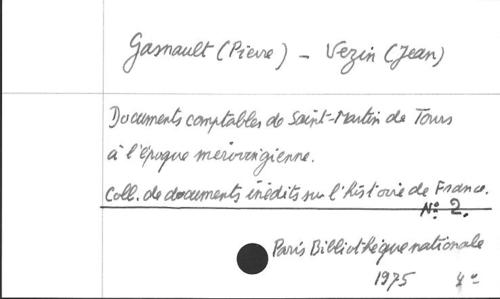 Gasnault (Pierre) - Vezin (Jean)
Documents comptables de Saint-Martin de Tours
à l'époque mérovingienne.
Coll. de documents inédits sur l'histoire de France.
No 2.
Paris Bibliothèque nationale
1975 4o